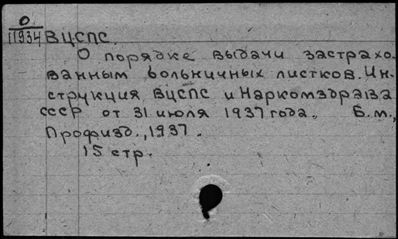 О
11934 ВЦСПС.
О порядке выдачи застрахо-
ванным больничных листков. Ин-
струкция ВЦСПС и Наркомздрава
СССР от 31 июля 1937 года. Б.м.,
Профизд., 1937.
15 стр.